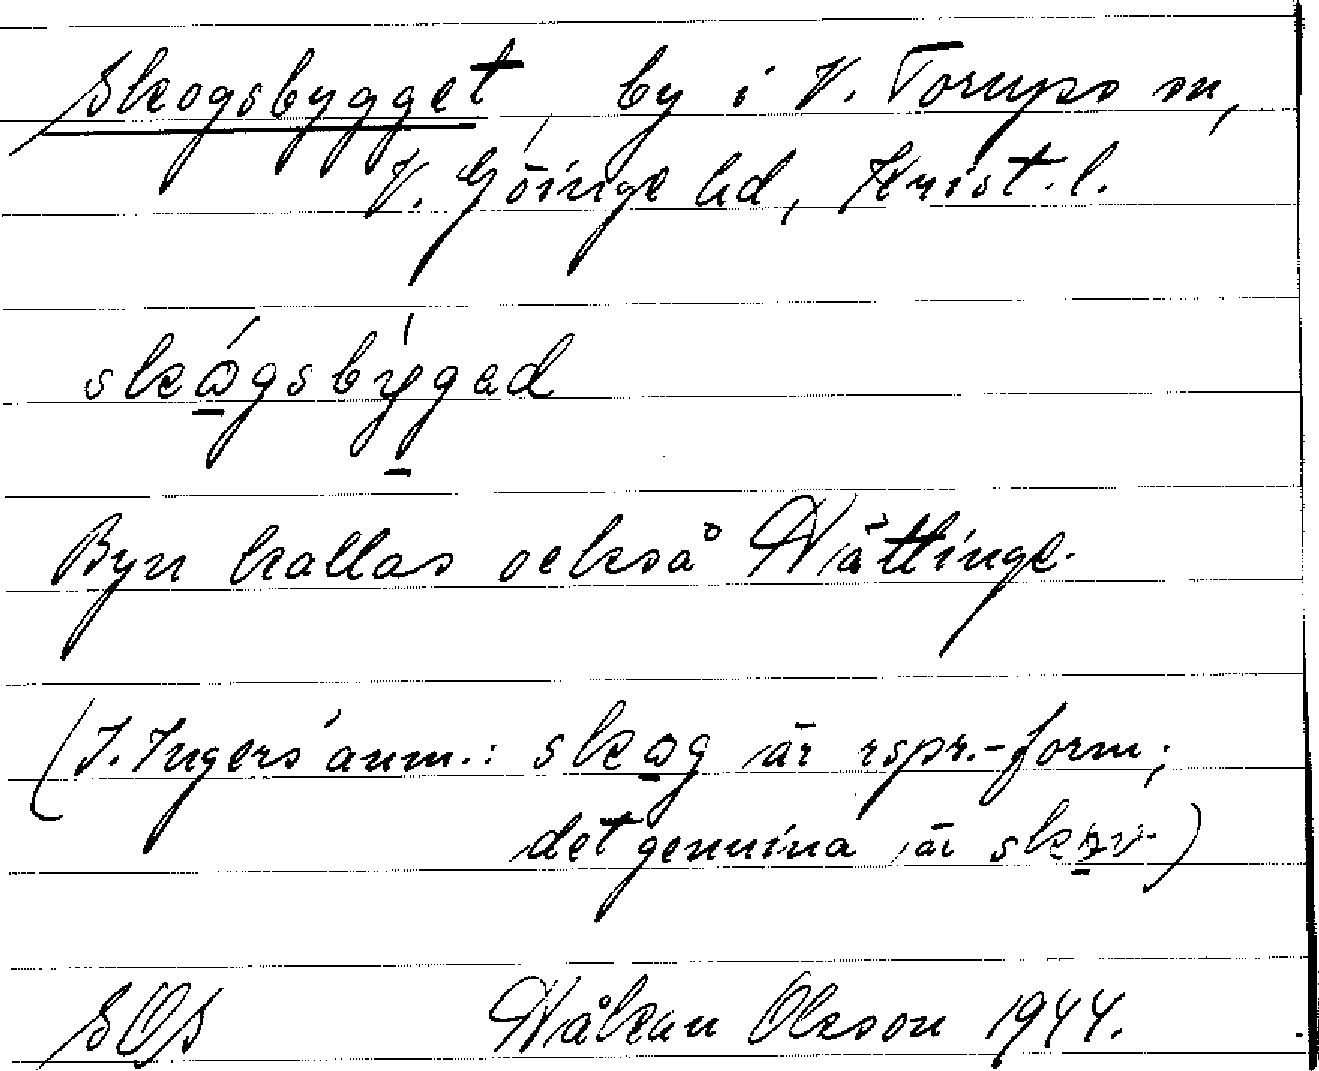 Skogsbygget, by i V. Torups sn,
V. Göinge hd, Krist. l.
skógsbýged
Byn kallas också Hättinge.
(I. Ingers anm.: skog är rspr.-form;
det genuina är
SOS Håkan Olsson 1944.